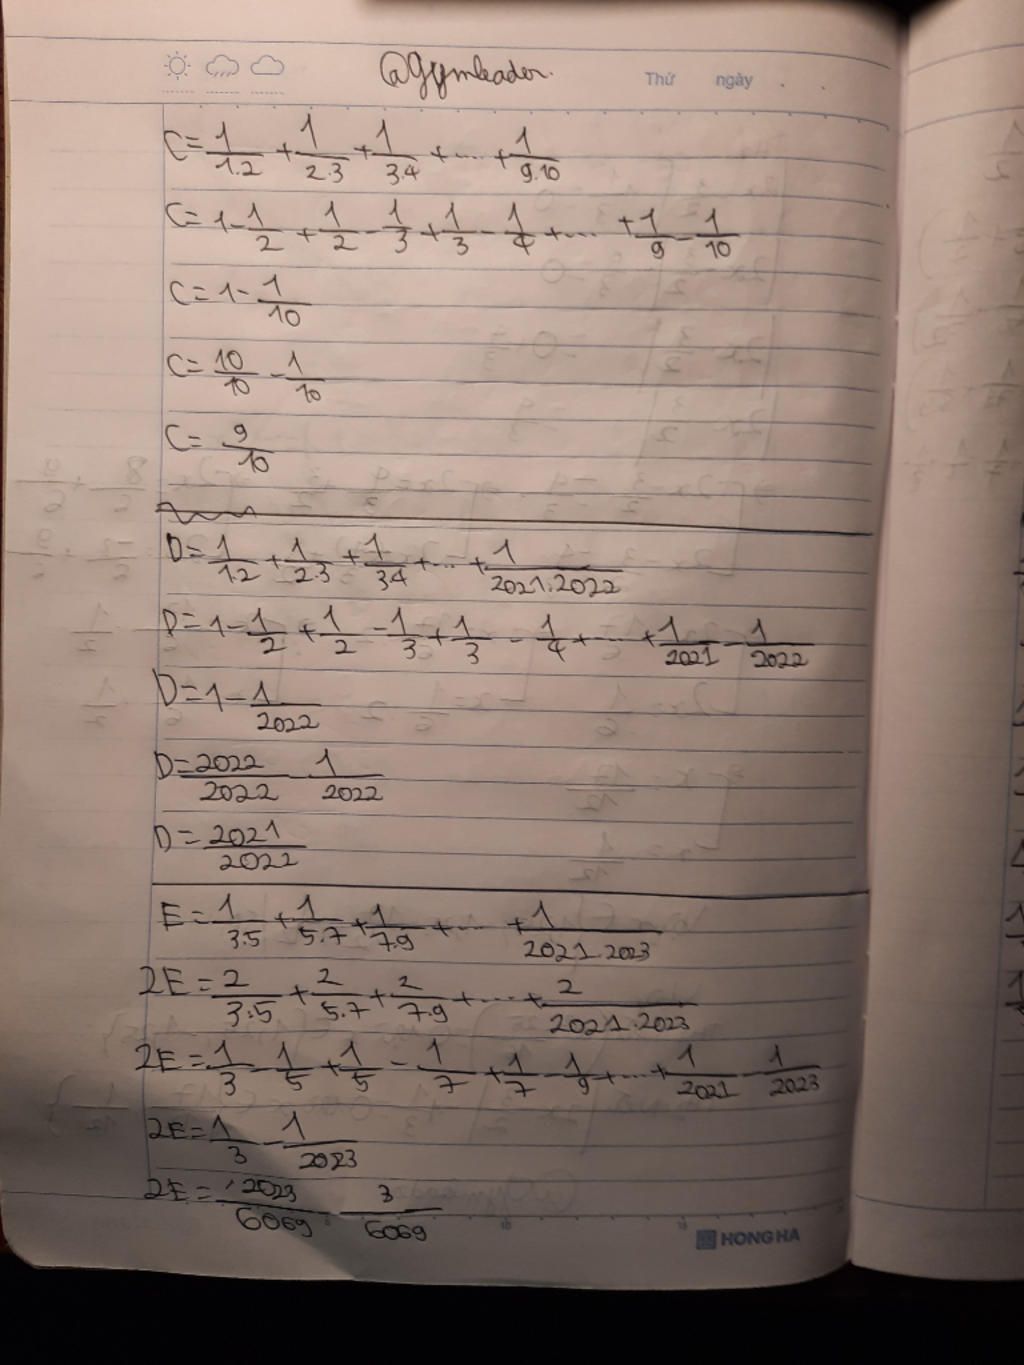 @gymleader.
Thứ ngày . .
C = 1/1.2 + 1/2.3 + 1/3.4 + .... + 1/9.10
C = 1 - 1/2 + 1/2 - 1/3 + 1/3 - 1/4 + .... + 1/9 - 1/10
C = 1 - 1/10
C = 10/10 - 1/10
C = 9/10
D = 1/1.2 + 1/2.3 + 1/3.4 + ... + 1/2021.2022
D = 1 - 1/2 + 1/2 - 1/3 + 1/3 - 1/4 + .... + 1/2021 - 1/2022
D = 1 - 1/2022
D = 2022/2022 - 1/2022
D = 2021/2022
E = 1/3.5 + 1/5.7 + 1/7.9 + .... + 1/2021.2023
2E = 2/3.5 + 2/5.7 + 2/7.9 + .... + 2/2021.2023
2E = 1/3 - 1/5 + 1/5 - 1/7 + 1/7 - 1/9 + ... + 1/2021 - 1/2023
2E = 1/3 - 1/2023
2E = 2023/6069 - 3/6069
HONG HA